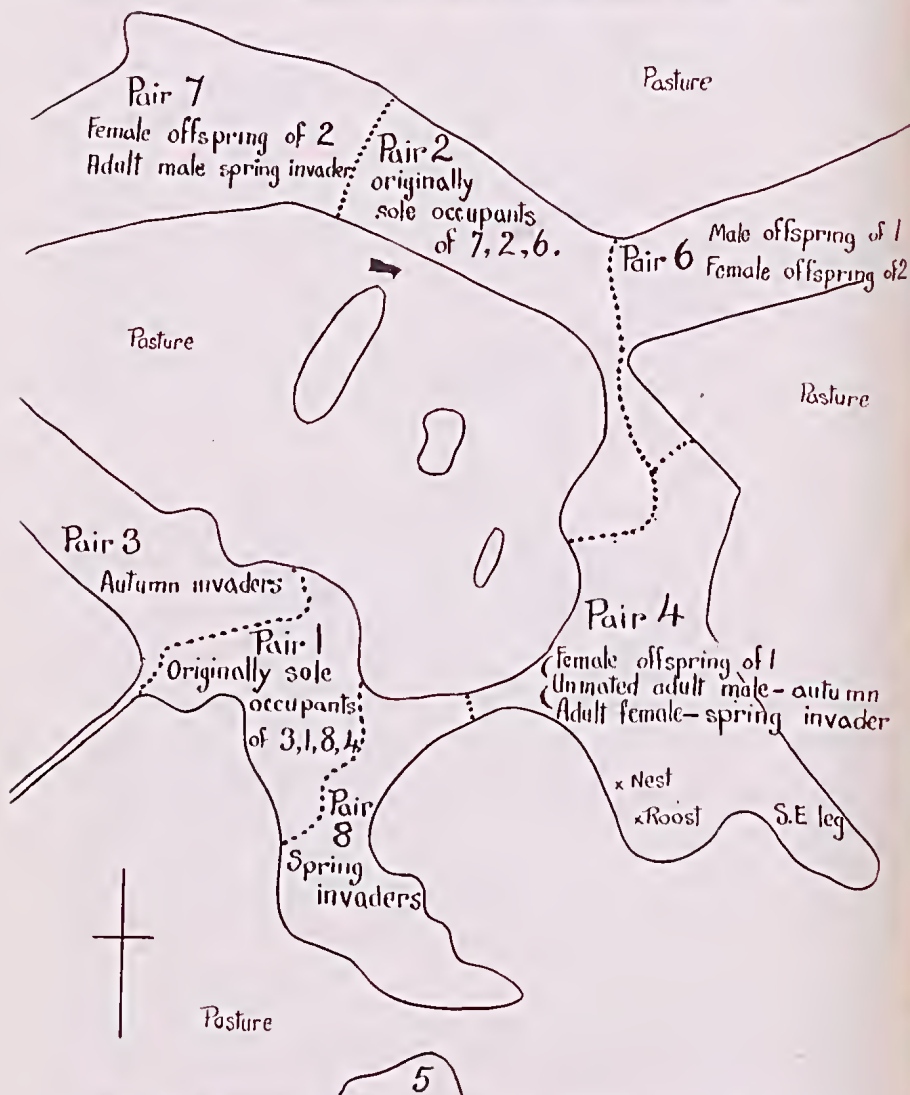 Pasture
Pair 7
Female offspring of 2
Adult male spring invader
Pair 2
originally
sole occupants
of 7, 2, 6.
Pair 6
Male offspring of 1
Female offspring of 2
Pasture
Pasture
Pair 3
Autumn invaders
Pair 1
Originally sole
occupants
of 3, 1, 8, 4
Pair 4
Female offspring of 1
Unmated adult male - autumn
Adult female - spring invader
x Nest
x Roost
S.E leg
Pair
8
Spring
invaders
Pasture
5